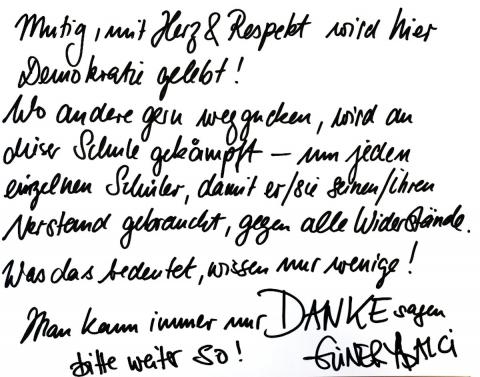 Mutig, mit Herz & Respekt wird hier
Demokratie gelebt!
Wo andere gern weggucken, wird an
dieser Schule gekämpft – um jeden
einzelnen Schüler, damit er/sie seinen/ihren
Verstand gebraucht, gegen alle Widerstände.
Was das bedeutet, wissen nur wenige!
Man kann immer nur DANKE sagen
bitte weiter so! GÜNER BALCI